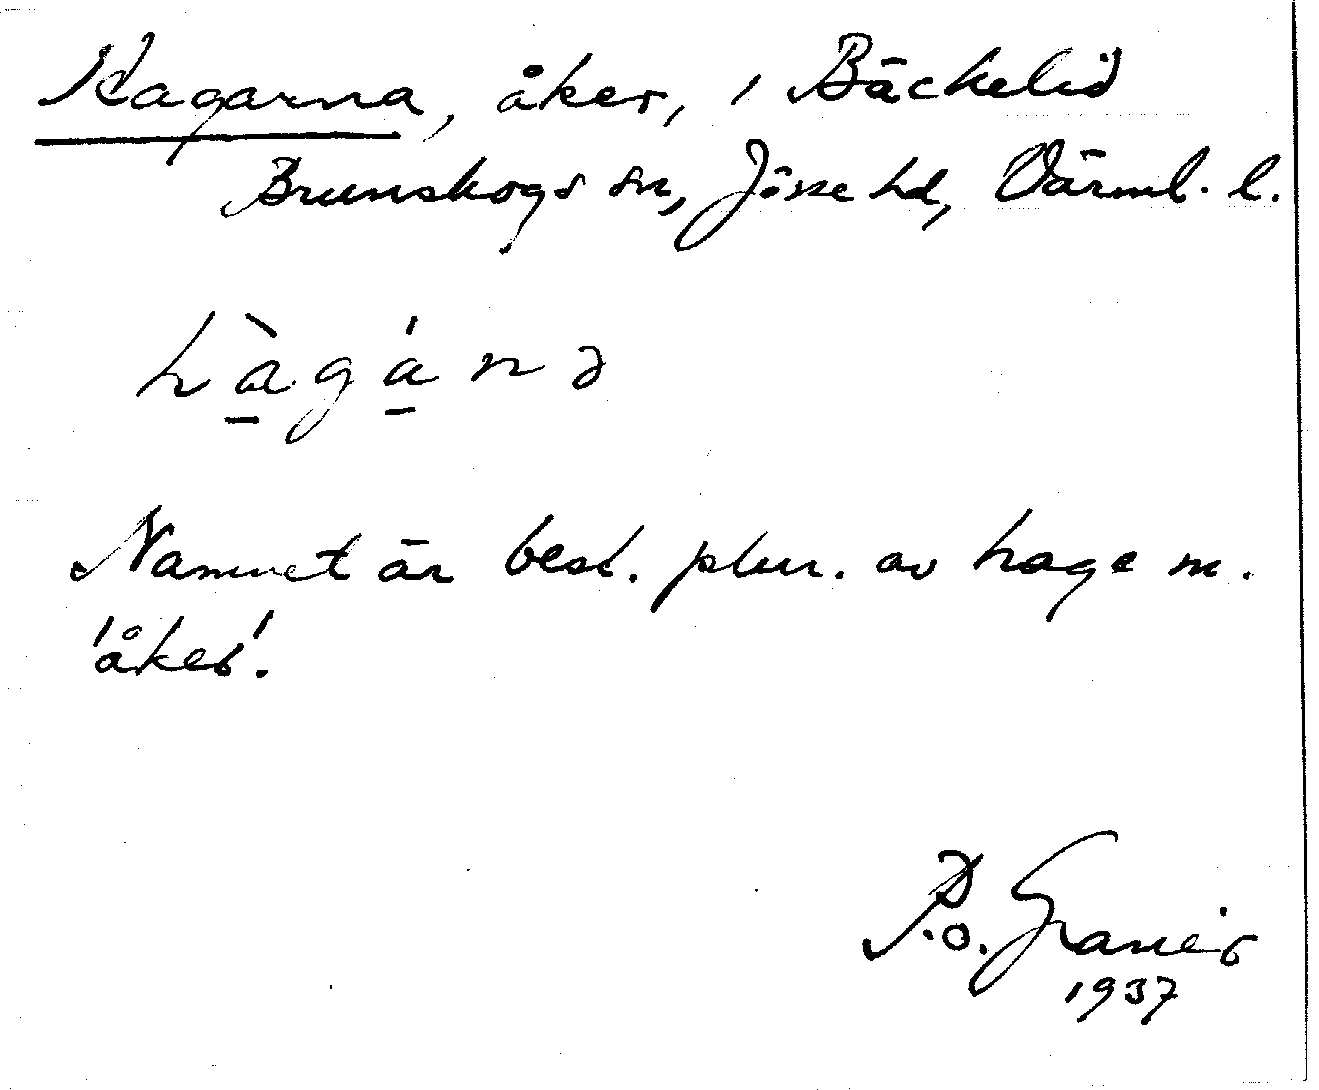 Hagarna, åker, i Bäckelid
Brunskogs sn, Jösse hd, Värml. l.
hàgánə
Namnet är best. plur. av hage m.
'åker'.
P.O. Granér
1937